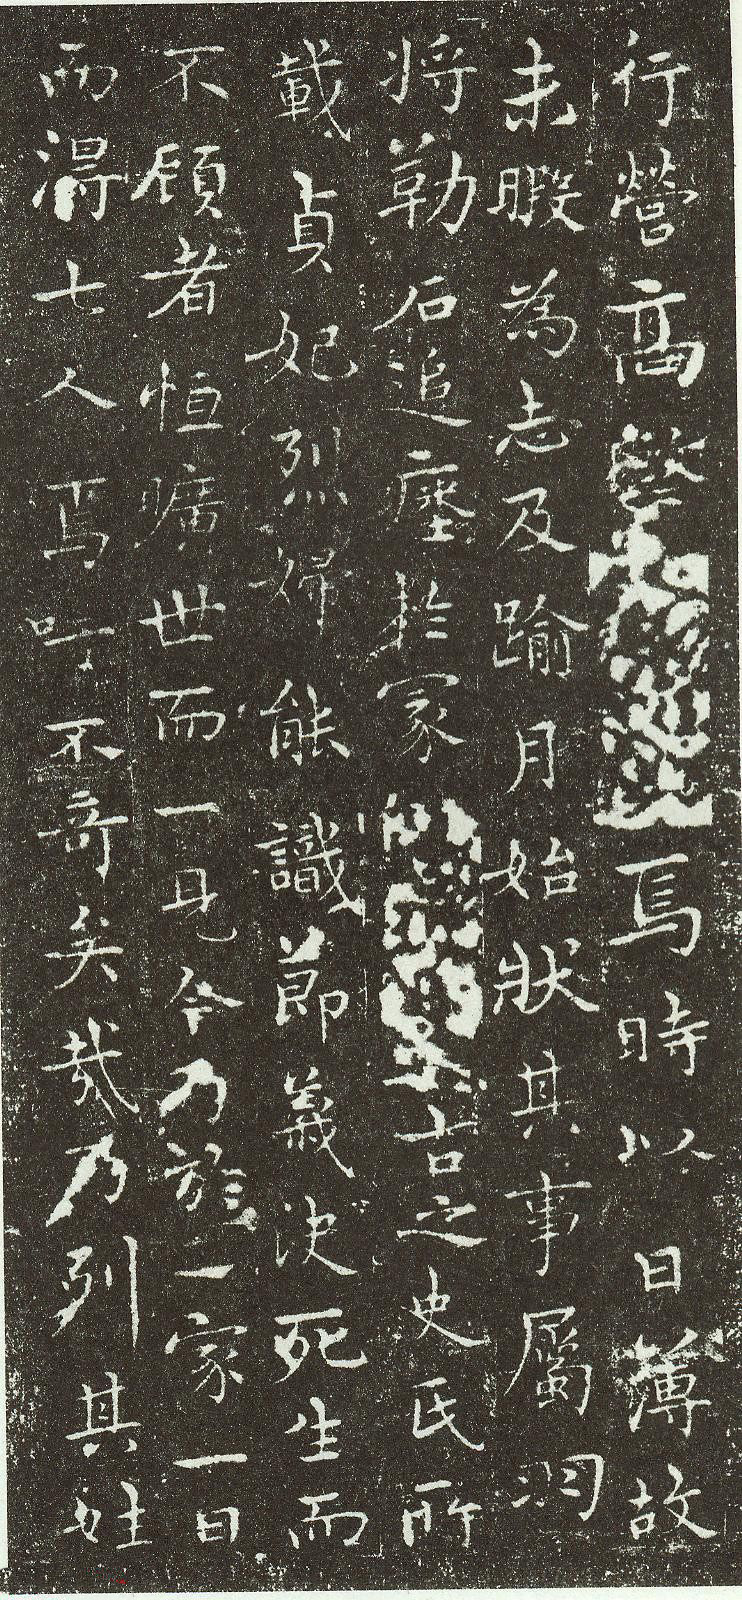 行營高焉時以日薄故
未暇為志及踰月始狀其事屬羽
將勒石追瘞於冢古之史氏所
載貞妃烈婦能識節義決死生而
不顧者恒曠世而一見今乃於一家一日
而得七人焉吁不奇矣哉乃列其姓